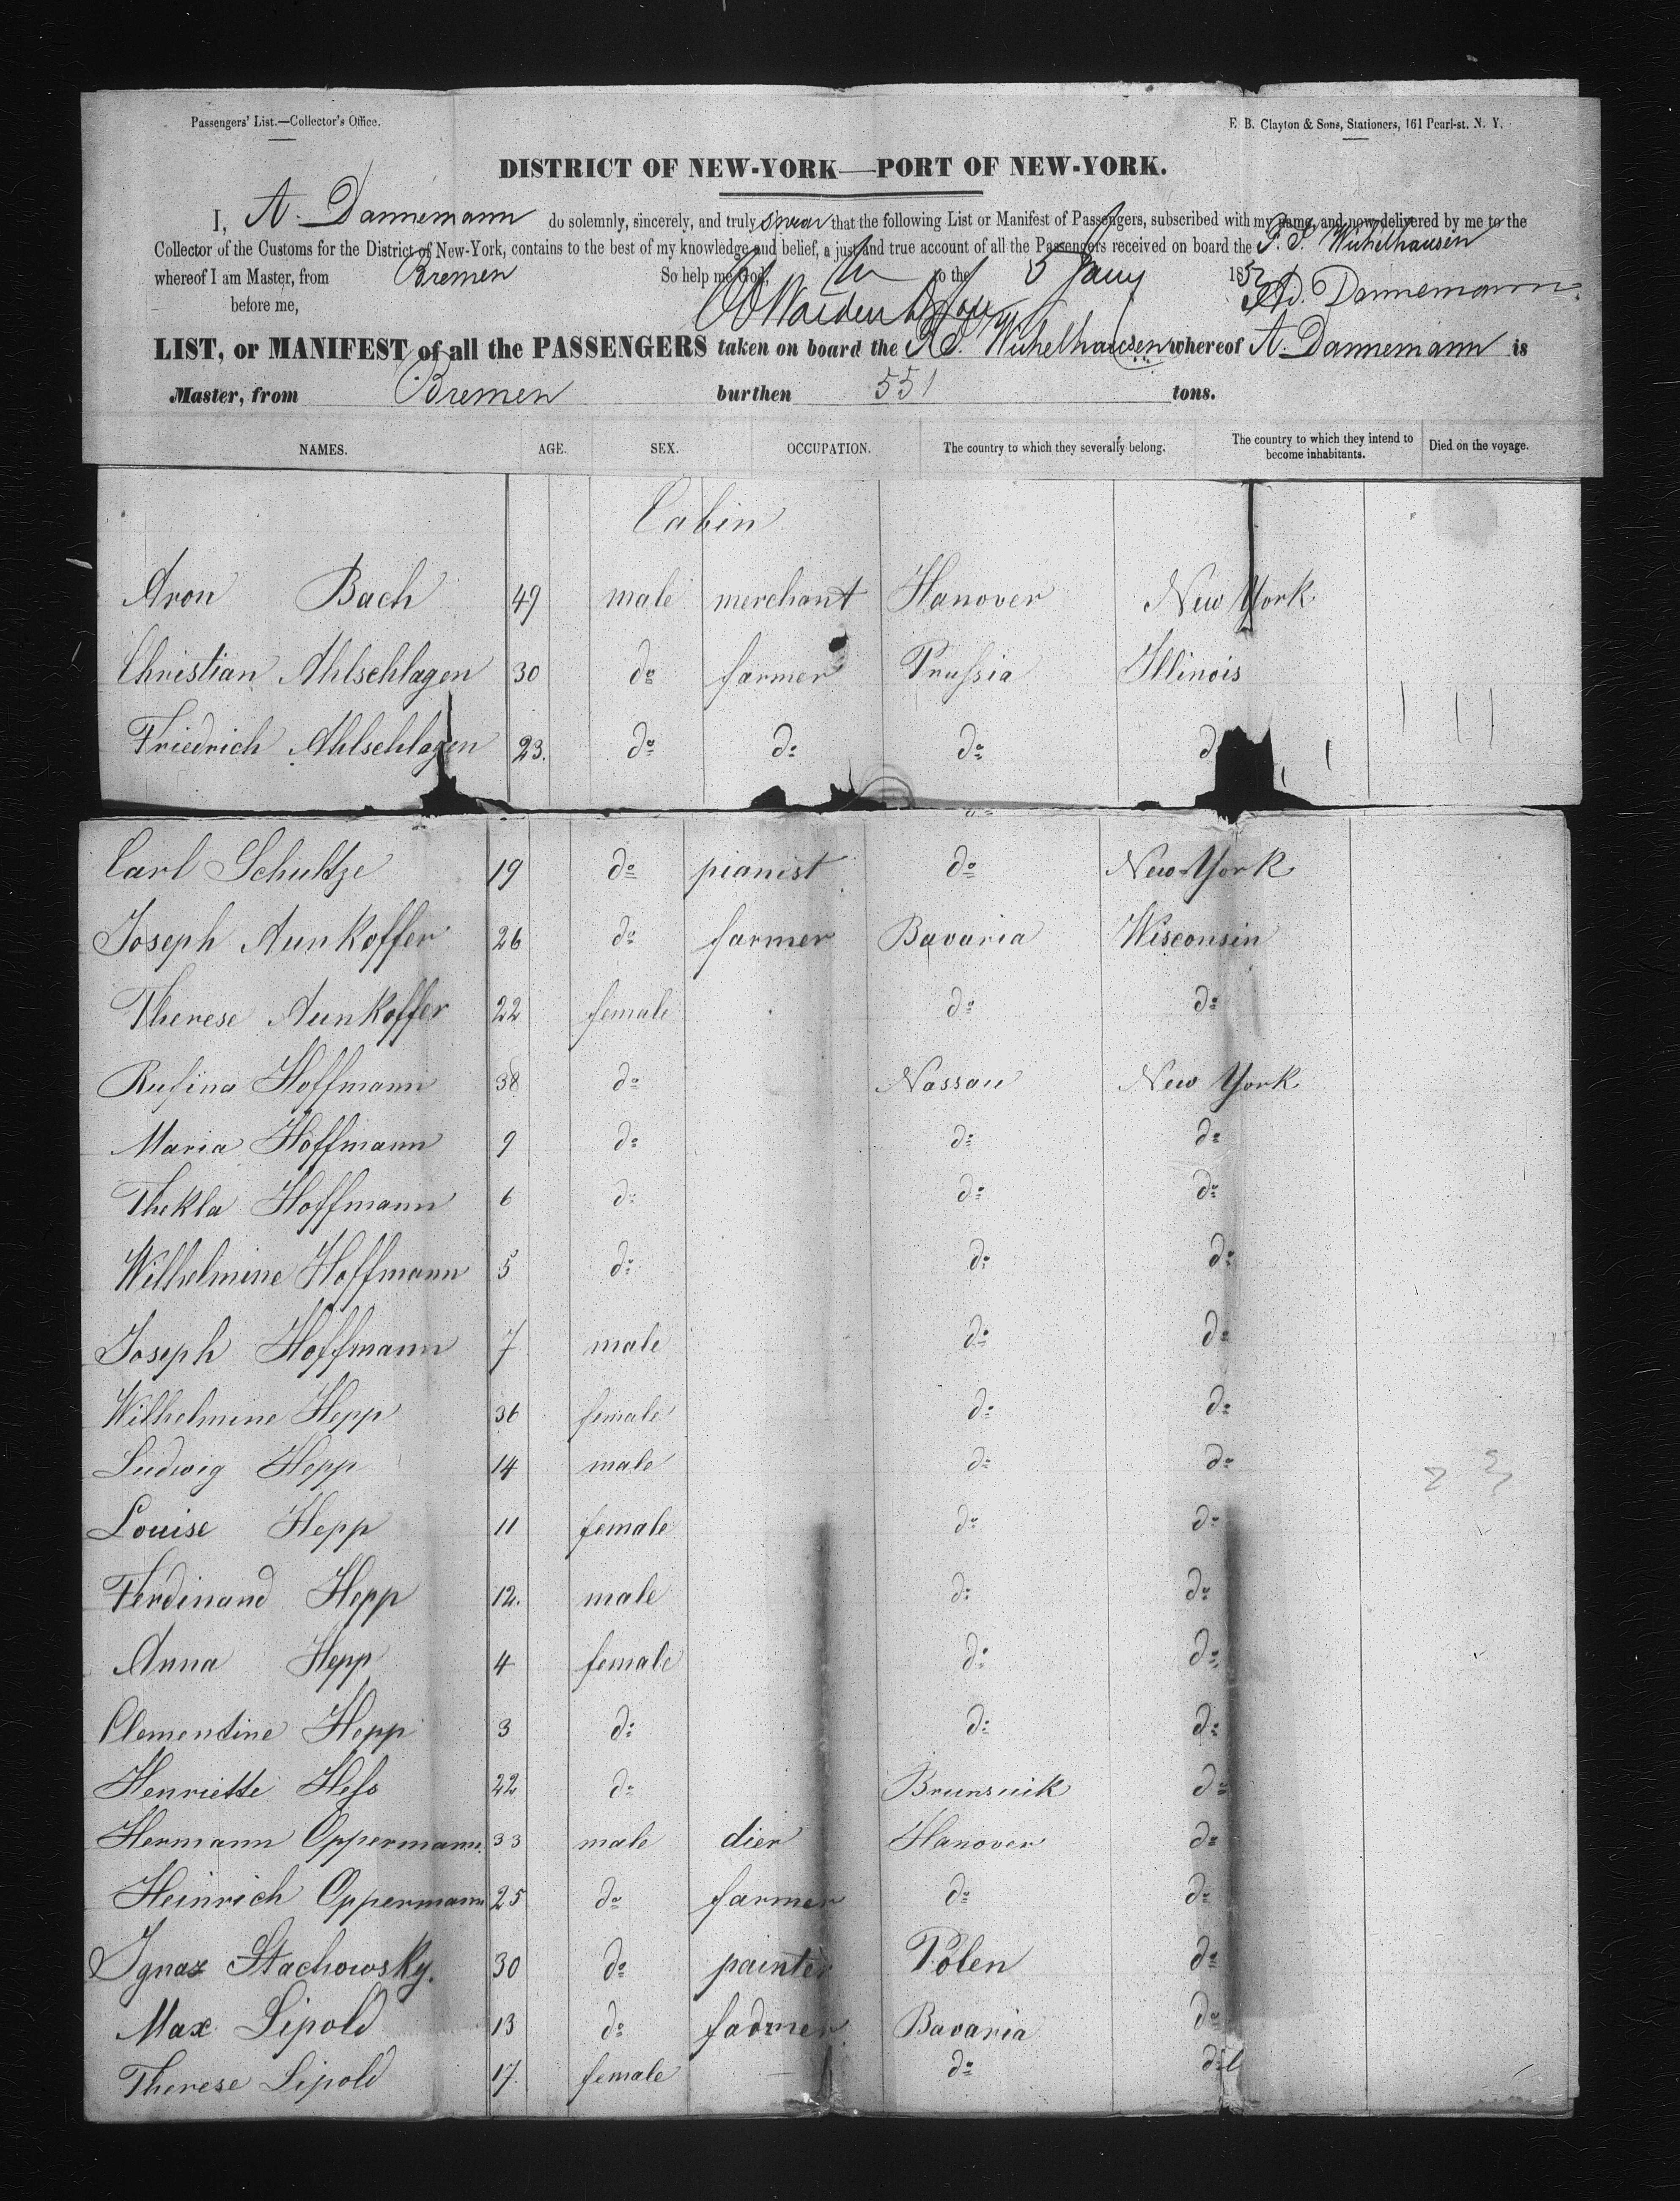 Passengers' List.—Collector's Office.
E. B. Clayton & Sons, Stationers, 161 Pearl-st. N. Y.
DISTRICT OF NEW-YORK—PORT OF NEW-YORK.
I, A. Dannemann do solemnly, sincerely, and truly swear that the following List or Manifest of Passengers, subscribed with my name, and now delivered by me to the
Collector of the Customs for the District of New-York, contains to the best of my knowledge and belief, a just and true account of all the Passengers received on board the Wichelhausen
whereof I am Master, from Bremen So help me God, to the 5 Jany 185
before me, Ad. Dannemann.
LIST, or MANIFEST of all the PASSENGERS taken on board the Wichelhausen whereof A. Dannemann is
Master, from Bremen burthen 551 tons.
NAMES. AGE. SEX. OCCUPATION. The country to which they severally belong. The country to which they intend to become inhabitants. Died on the voyage.
Cabin
Aron Bach 49 male merchant Hanover New York
Christian Ahlschlagen 30 do farmer Prussia Illinois
Friedrich Ahlschlagen 23. do do do d
Carl Schultze 19 do pianist do New York
Joseph Aunkoffer 26 do farmer Bavaria Wisconsin
Therese Aunkoffer 22 female do do
Rufina Hoffmann 38 do Nassau New York
Maria Hoffmann 9 do do do
Thekla Hoffmann 6 do do do
Wilhelmine Hoffmann 5 do do do
Joseph Hoffmann 7 male do do
Wilhelmine Hepp 36 female do do
Ludwig Hepp 14 male do do
Louise Hepp 11 female do do
Ferdinand Hepp 12. male do do
Anna Hepp 4 female do do
Clementine Hepp 3 do do do
Henriette Hess 22 do Brunsuik do
Hermann Oppermann. 33 male dier Hanover do
Heinrich Oppermann 25 do farmer do do
Ignaz Stachowsky. 30 do painter Polen do
Max Lipold 13 do farmer Bavaria do
Therese Lipold 17. female do do